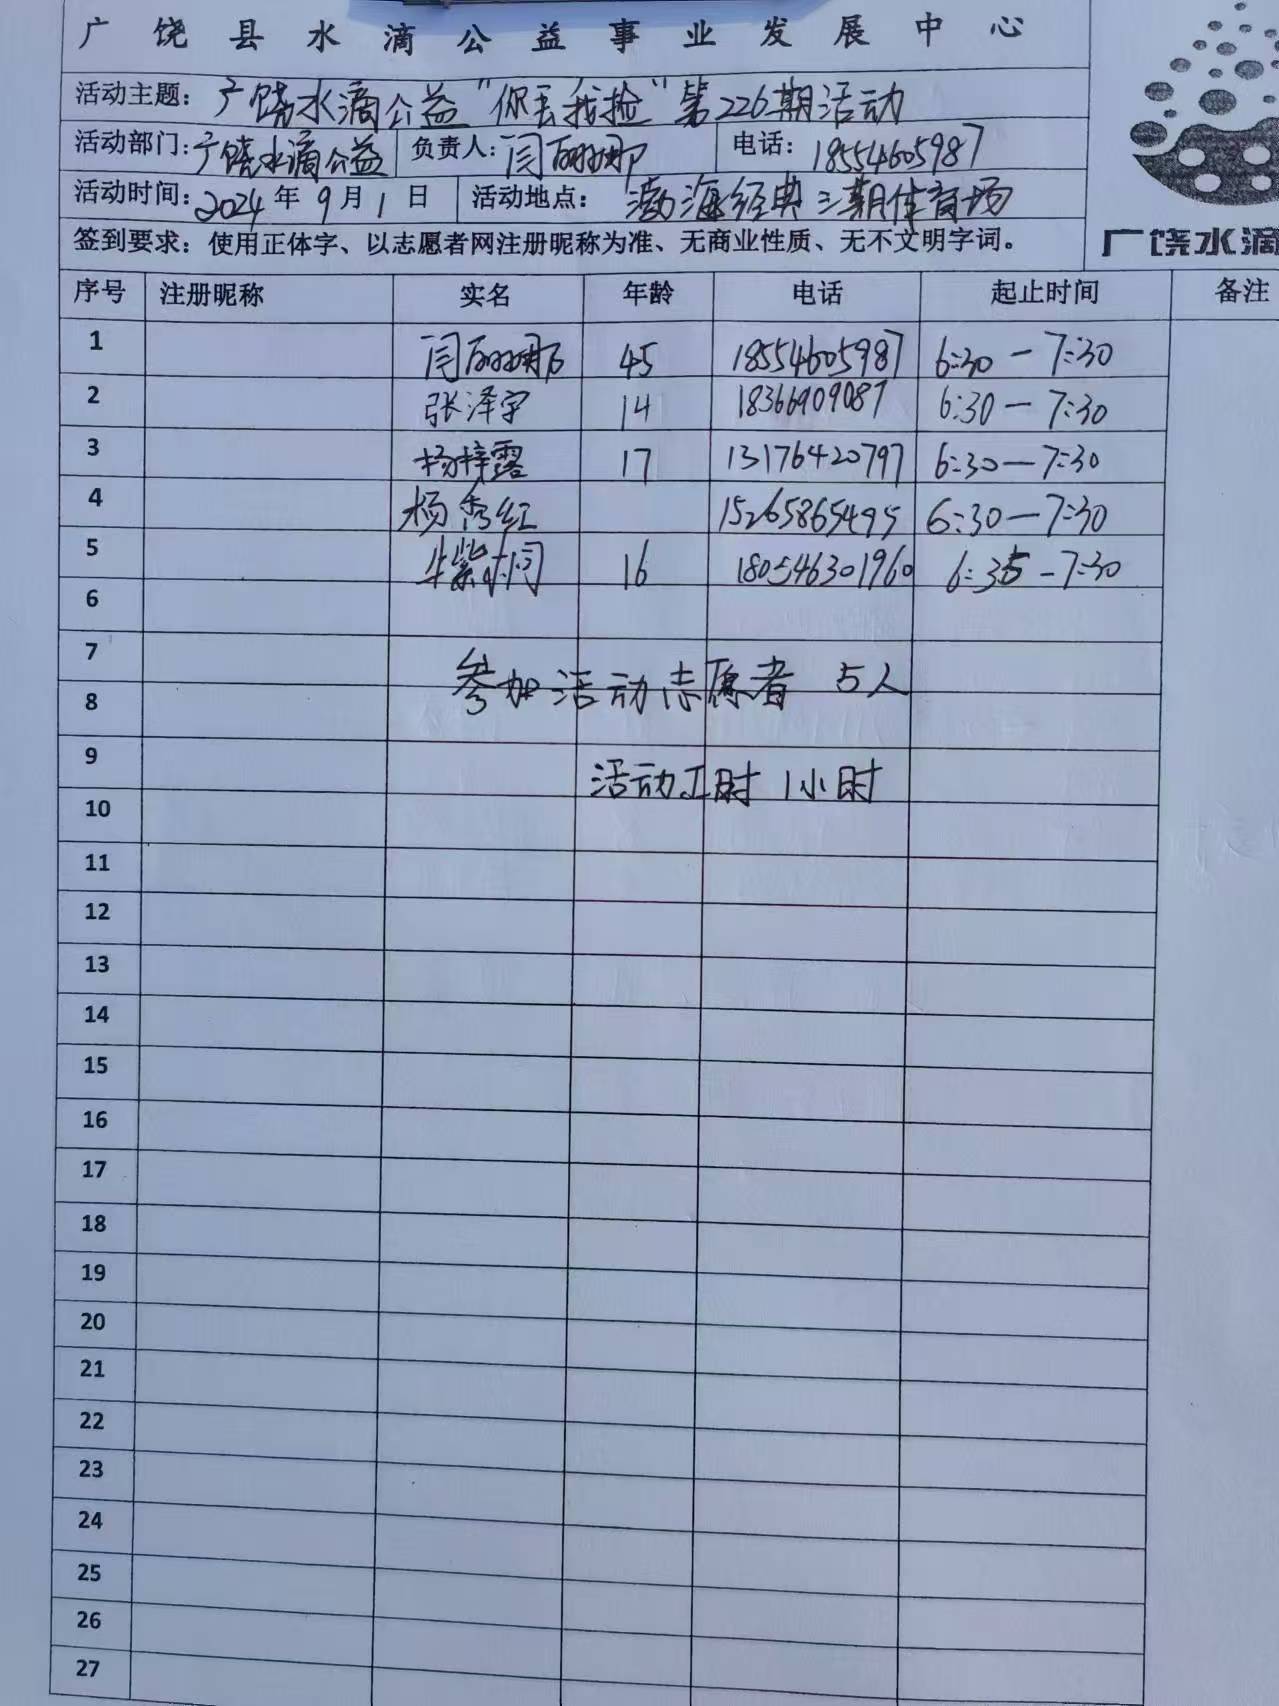 广饶县水滴公益事业发展中心
活动主题：广饶水滴公益“你丢我捡”第226期活动
活动部门：广饶水滴公益 负责人：闫丽娜 电话：18554605987
活动时间：2024年9月1日 活动地点：渤海经典三期体育场
广饶水滴
签到要求：使用正体字、以志愿者网注册昵称为准、无商业性质、无不文明字词。
序号 注册昵称 实名 年龄 电话 起止时间 备注
1 闫丽娜 45 18554605987 6:30－7:30
2 张泽宇 14 18366909087 6:30－7:30
3 杨梓露 17 13176420797 6:30－7:30
4 杨秀红 15265865495 6:30－7:30
5 牛紫 16 180546301960 6:35－7:30
6
7
参加活动志愿者 5人
8
9
活动工时 1小时
10
11
12
13
14
15
16
17
18
19
20
21
22
23
24
25
26
27